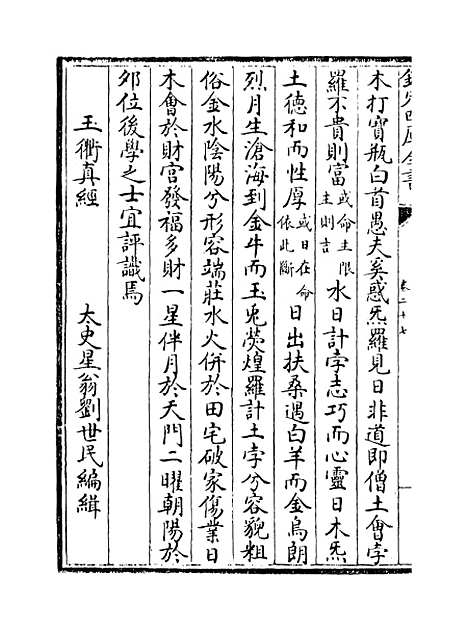 欽定四庫全書
卷二十七
木打寶瓶白首愚夫奚惑炁羅見日非道即僧土會孛
羅不貴則富或命主限主則言水日計孛志巧而心靈日木炁
土德和而性厚或日在命依此斷日出扶桑遇白羊而金烏朗
烈月生滄海到金牛而玉兎熒煌羅計土孛兮容貌粗
俗金水陰陽兮形容端莊水火併於田宅破家傷業日
木會於財宫發福多財一星伴月於天門二曜朝陽於
邜位後學之士宜評識焉
玉衡真經
太史星翁劉世民編緝